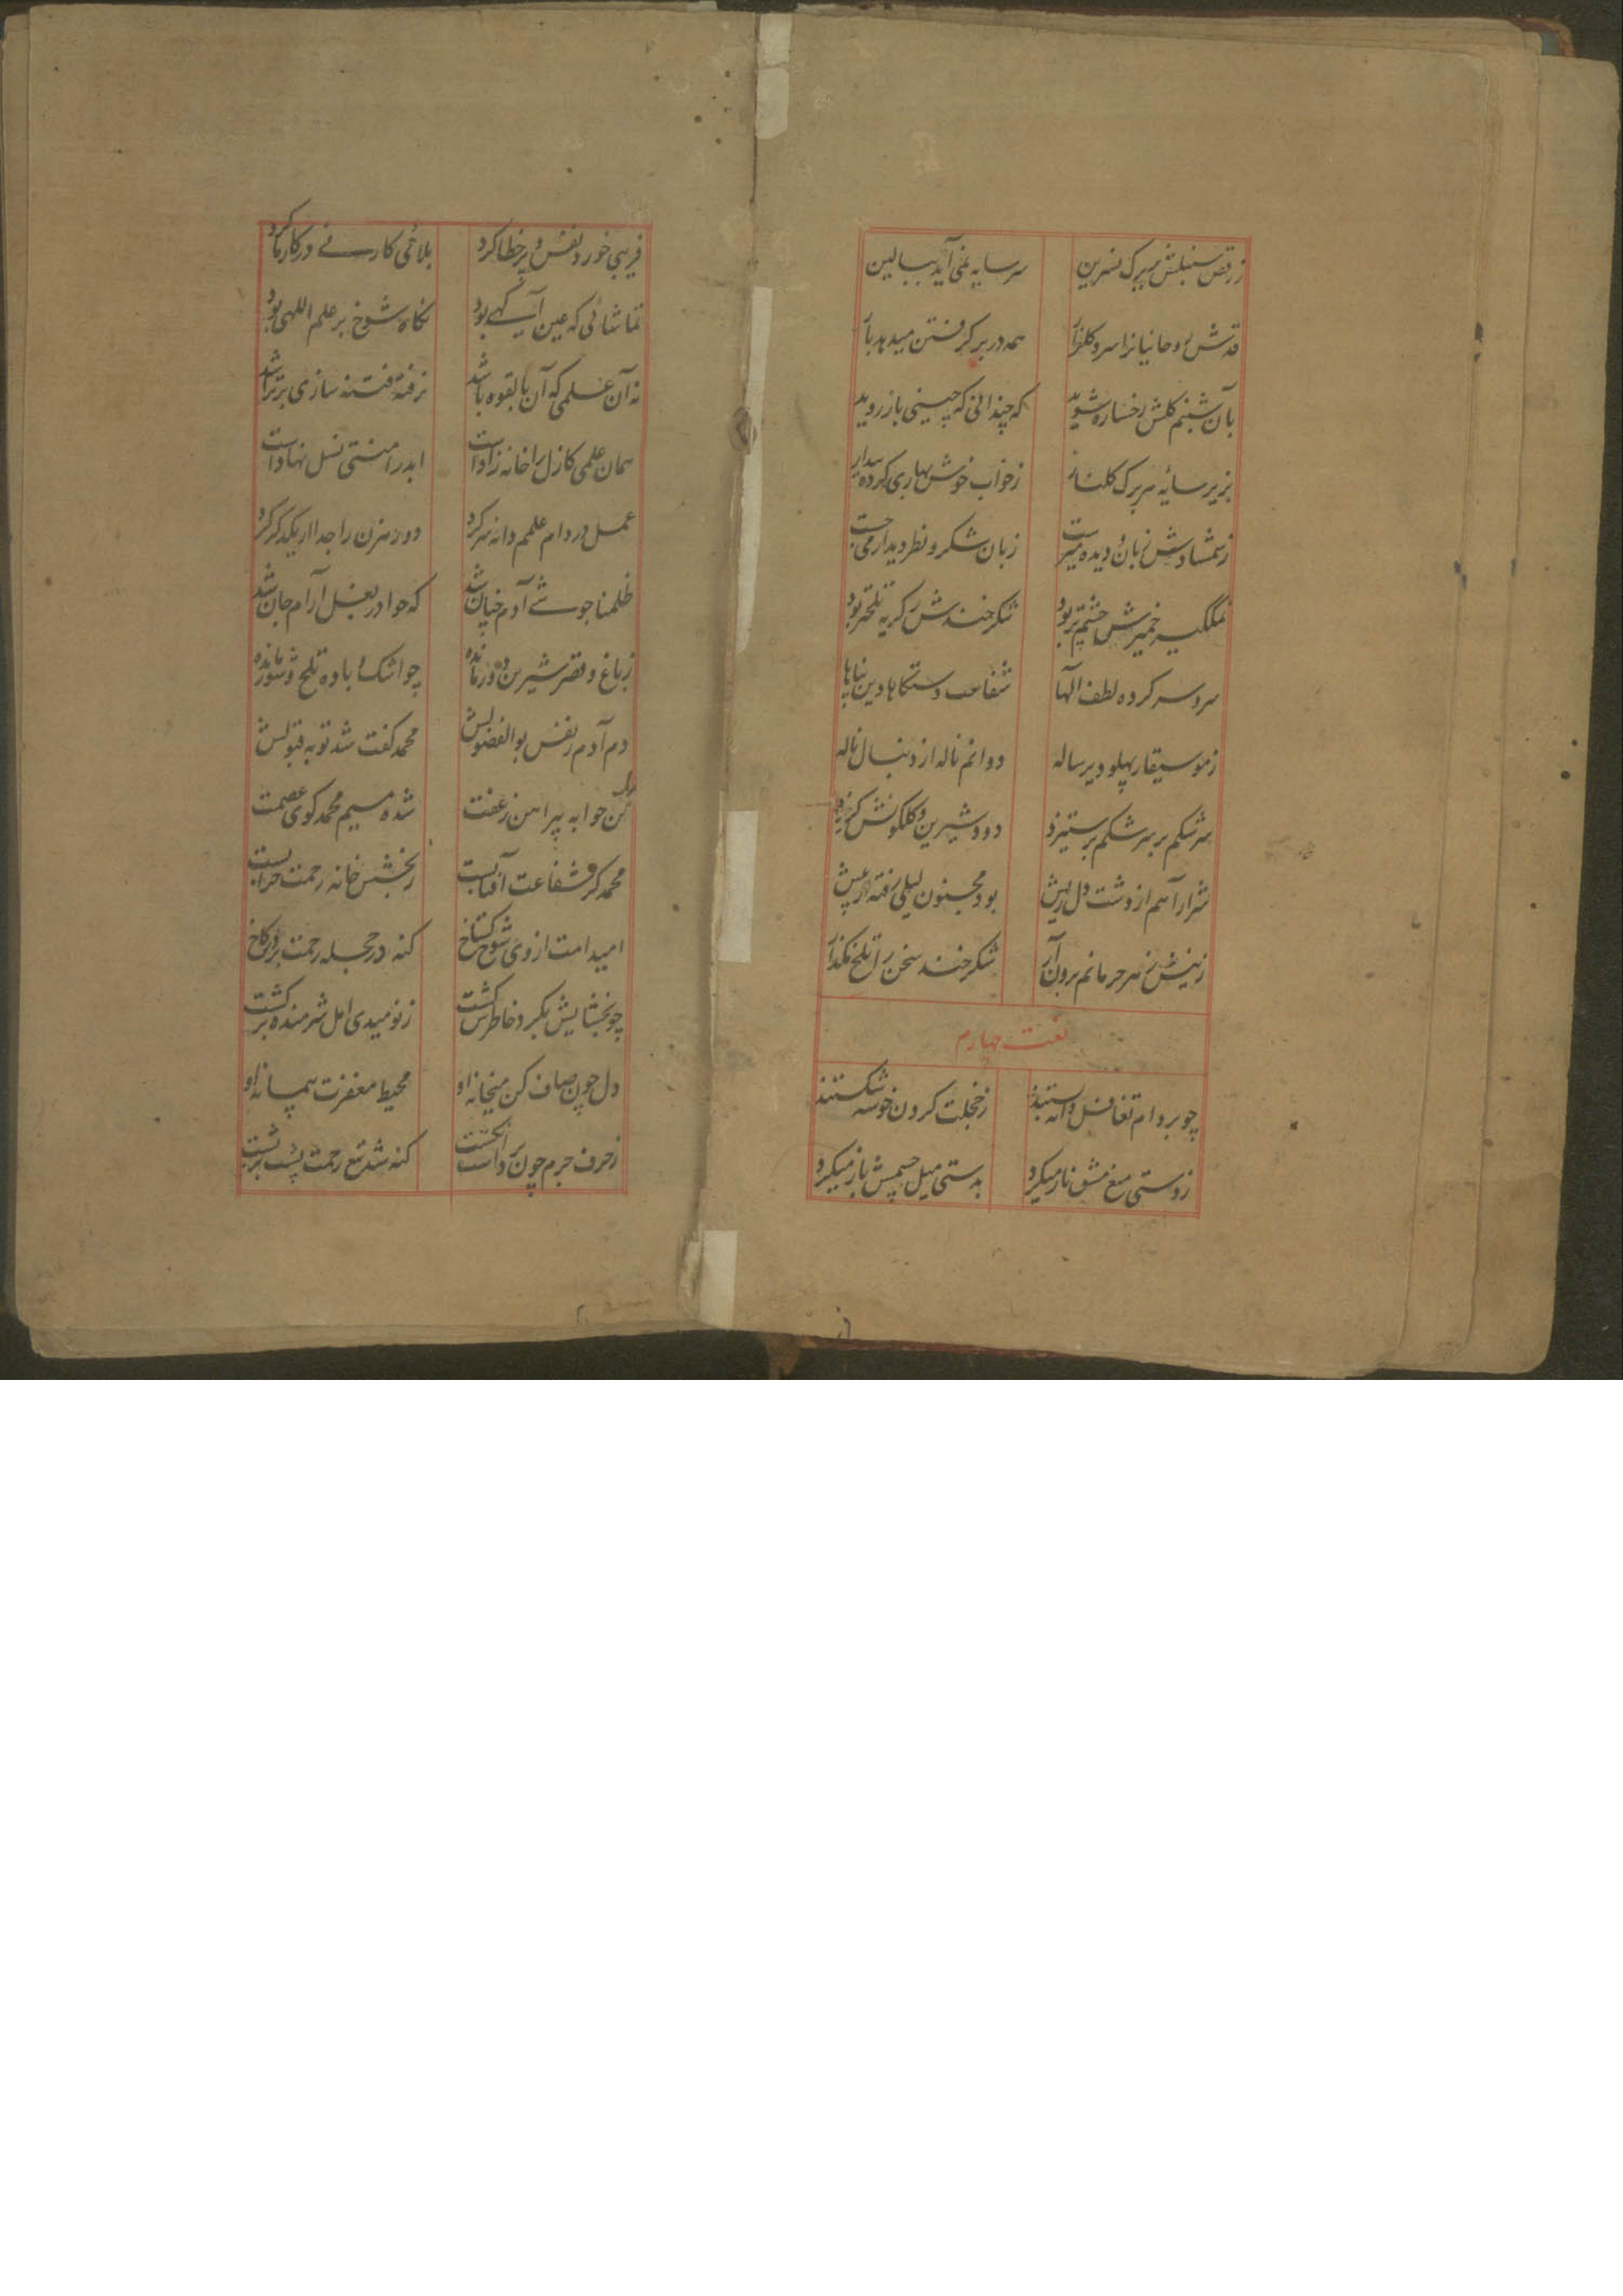 ز رقص سنبلش بر برگ نسرین سر سایه نمی آید ببالین
قدش روحانیانرا سرو گلزار همه در بر گرفتن میدهد بار
بآن شبنم گلش رخساره شوید که چندانی که چینی باز روید
بزیر سایه هر برگ گلنار ز خواب خوش بهاری کرده بیدار
ز شمشادش زبان و دیده میرست زبان شکر و نظر دیدار می جست
نمکگیر خمیرش چشم تر بود شکرخندش ز گریه تلختر بود
سر و سر کرده لطف الها شفاعت دستگاها دین پناها
ز موسیقار پهلو دیر ساله دوانم ناله از دنبال ناله
سرشکم بر سر شکم بر ستیزد دود شیرین و گلگونش
شرار آهم از دشت دل ریش بود مجنون لیلی رفته از پیش
ز نیش زهر حرمانم برون آر شکرخند سخن را تلخ مگذار
نعت چهارم
چو بر دام تغافل دانه بستند ز خجلت گردن خوشه شکستند
ز دستی منع عشق ناز میکرد بدستی میل چشمش باز میکرد
فریبی خورد نفس و پر خطا کرد بلائی کار نی در کار ما کرد
تماشائی که عین آگهی بود نگاه شوخ بر علم اللهی بود
نه آن علمی که آن بالقوه باشد ز فتنه سازی
همان علمی کازل را خانه زادست ابد را منتی نسل نهادست
عمل در دام علمم دانه سر کرد دو رهزن را جدا از یکدگر کرد
ظلمنا جوشی آدم چنان شد که حوا در بغل آرام جان شد
ز باغ و قصر شیرین دور مانده چو اشک باده تلخ و شور مانده
دم آدم ز نفس بوالفضولش محمد گفت شد توبه قبولش
حوا به پیراهن ز عفت شده میم محمد گوی عصمت
محمد کز شفاعت آفتابست ز بخشش خانه رحمت خرابست
امید امت از وی شوخ گستاخ گنه در حجله رحمت
چو بخشایش بگرد خاطرش گشت ز نومیدی امل شرمنده برگشت
دل چون صاف کن میخانه او محیط مغفرت پیمانه او
ز حرف جرم چون برداشت انگشت گنه شد تیغ رحمت پشت بر پشت